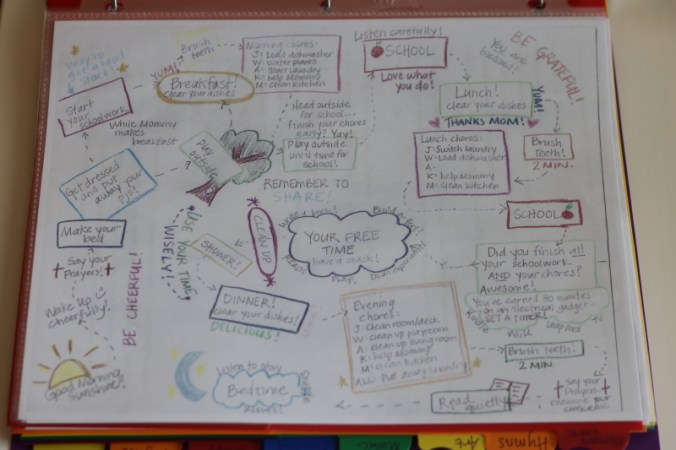 Good Morning
Sunshine!
Wake up
Cheerfully!
Say your
Prayers!
BE CHEERFUL!
Make your
bed
Get dressed
and put
away your
pj's!
Start
your schoolwork
While Mommy
makes
breakfast
Play
outside
YUM!
Breakfast!
clear your dishes
Brush
teeth
Morning chores:
J: Load dishwasher
W: water plants
A: Start laundry
K: help Mommy
M: clean kitchen
Head outside
for school...
finish your chores
early? Yay!
Play outside
until time for
school!
Listen carefully!
SCHOOL
Love what
you do!
You are
blessed!
BE GRATEFUL!
Lunch!
clear your dishes
YUM!
THANKS MOM!
Brush
Teeth!
2 MIN.
Lunch chores:
J: Switch laundry
W: Load dishwasher
A:
K: help Mommy
M: clean kitchen
SCHOOL
Did you finish all
your schoolwork
AND your chores?
Awesome!
You've earned 30 minutes
on an electrical gadget
SET A TIMER!
REMEMBER TO
SHARE!
YOUR FREE
TIME
have a snack!
CLEAN UP
USE YOUR TIME
WISELY!
SHOWER!
DINNER!
clear your dishes!
DELICIOUS!
Evening
chores:
J: clean room/deck
W: clean up playroom
A: clean up living room
K: help Mommy
M: clean kitchen
ALL: Put away laundry
Brush teeth:
2 MIN.
Say your
Prayers
Read
quietly
Listen to story
Bedtime
Hymns
Art